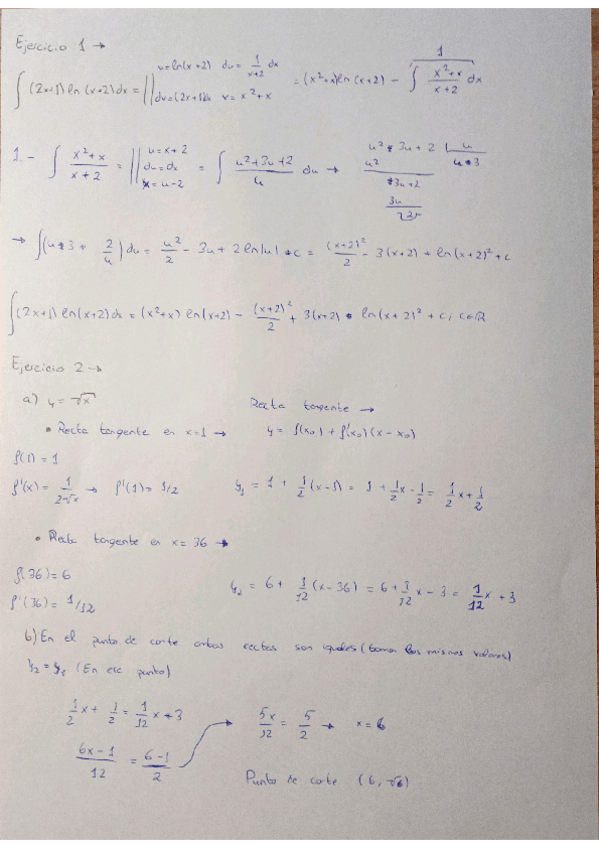 Ejercicio 1 →
∫(2x+1) ln(x+2) dx = || u = ln(x+2) du = 1/(x+2) dx dv = (2x+1)dx v = x²+x = (x²+x) ln(x+2) - ∫ (x²+x)/(x+2) dx
1
1.- ∫ (x²+x)/(x+2) = || u = x+2 du = dx x = u-2 = ∫ (u²+3u+2)/u du →
→ ∫(u+3+2/u) du = u²/2 - 3u + 2 ln|u| + c = (x+2)²/2 - 3(x+2) + ln(x+2)² + c
∫(2x+1) ln(x+2) dx = (x²+x) ln(x+2) - (x+2)²/2 + 3(x+2) • ln(x+2)² + c, c∈ℝ
Ejercicio 2 →
a) y = √x Recta tangente →
• Recta tangente en x=1 → y = f(x₀) + f'(x₀)(x-x₀)
f(1) = 1
f'(x) = 1/(2√x) → f'(1) = 1/2 y₁ = 1 + 1/2 (x-1) = 1 + 1/2 x - 1/2 = 1/2 x + 1/2
• Recta tangente en x = 36 →
f(36) = 6
f'(36) = 1/12 y₂ = 6 + 1/12 (x-36) = 6 + 1/12 x - 3 = 1/12 x + 3
b) En el punto de corte ambas rectas son iguales (toman los mismos valores)
y₂ = y₁ (En ese punto)
1/2 x + 1/2 = 1/12 x + 3 5x/12 = 5/2 → x = 6
(6x-1)/12 = (6-1)/2
Punto de corte (6, √6)